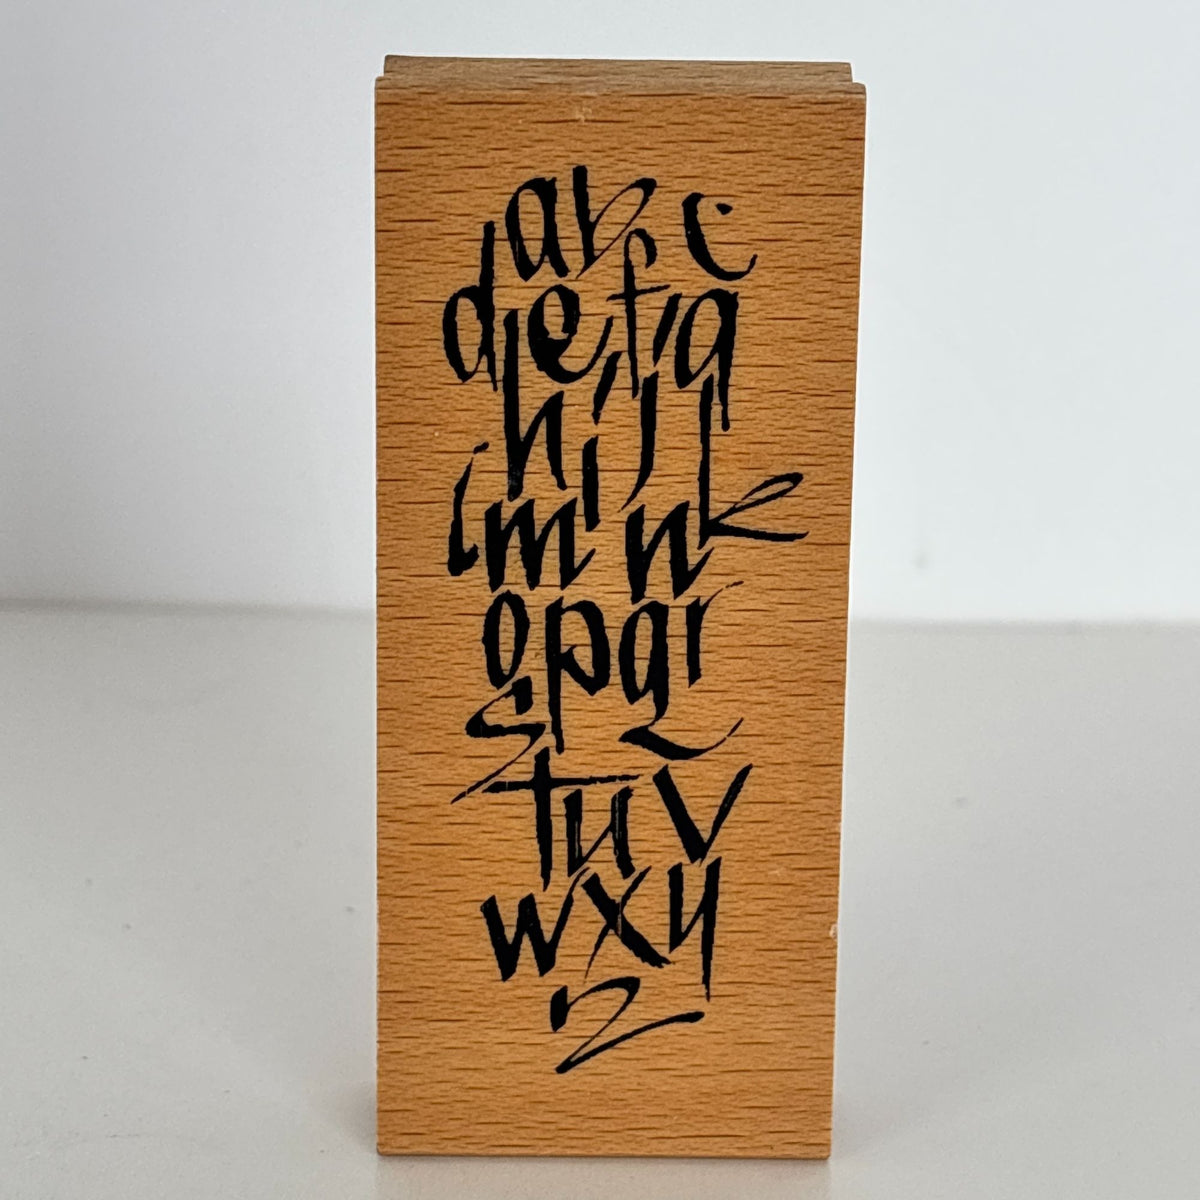 abc
defg
hijk
lmn
opqr
s
tuv
wxy
z